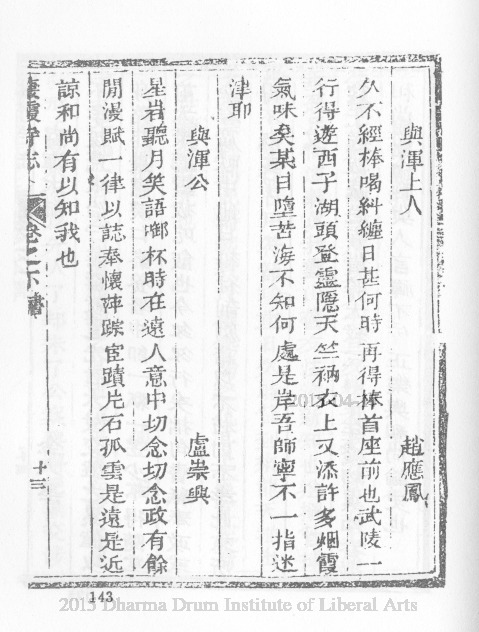 與渾上人　趙應鳳
久不經棒喝糾纏日甚何時再得棒首座前也武陵一
行得遊西子湖頭登靈隱天竺衲衣上又添許多烟霞
氣味矣某日墮苦海不知何處是岸吾師寧不一指迷
津耶
與渾公　盧崇興
星岩聽月笑語啣杯時在遠人意中切念切念政有餘
閒漫賦一律以誌奉懷萍踪宦蹟片石孤雲是遠是近
諒和尚有以知我也
棲霞寺志　卷之下
十三
143
2013 Dharma Drum Institute of Liberal Arts